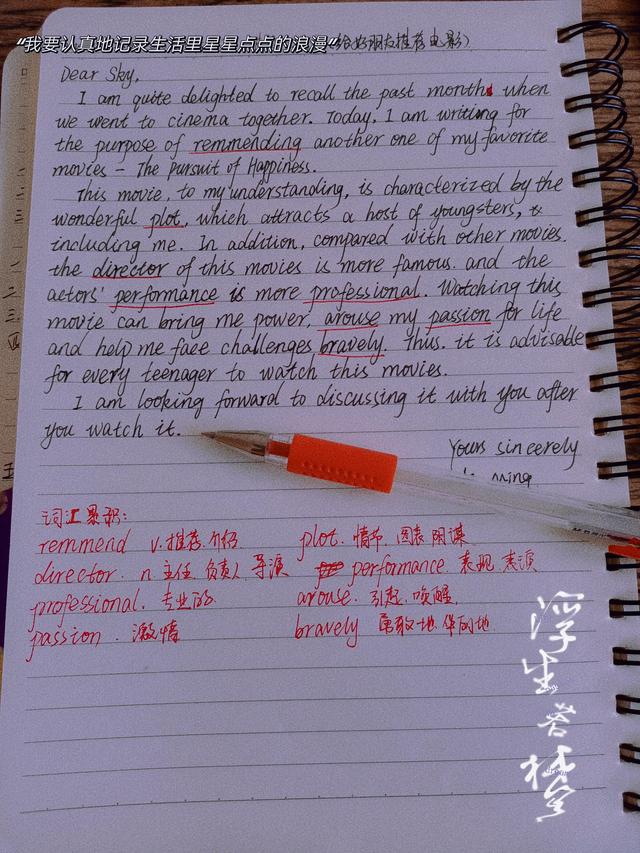 “我要认真地记录生活里星星点点的浪漫”
给好朋友推荐电影)
Dear Sky,
I am quite delighted to recall the past month when
we went to cinema together. Today, I am writing for
the purpose of remmending another one of my favorite
movies - The Pursuit of Happiness.
This movie, to my understanding, is characterized by the
wonderful plot, which attracts a host of youngsters,
including me. In addition, compared with other movies.
the director of this movies is more famous. and the
actors' performance is more professional. Watching this
movie can bring me power, arouse my passion for life
and help me face challenges bravely. Thus. it is advisable
for every teenager to watch this movies.
I am looking forward to discussing it with you after
you watch it.
Yours sincerely
ming
词汇累积:
remmend v.推荐.介绍 plot. 情节. 图表 阴谋
director. n 主任. 负责人. 导演 performance. 表现. 表演
professional. 专业的 arouse. 引起. 唤醒.
passion. 激情 bravely 勇敢地. 华丽地
浮生若梦
二
三
三
一
二
三
四
五